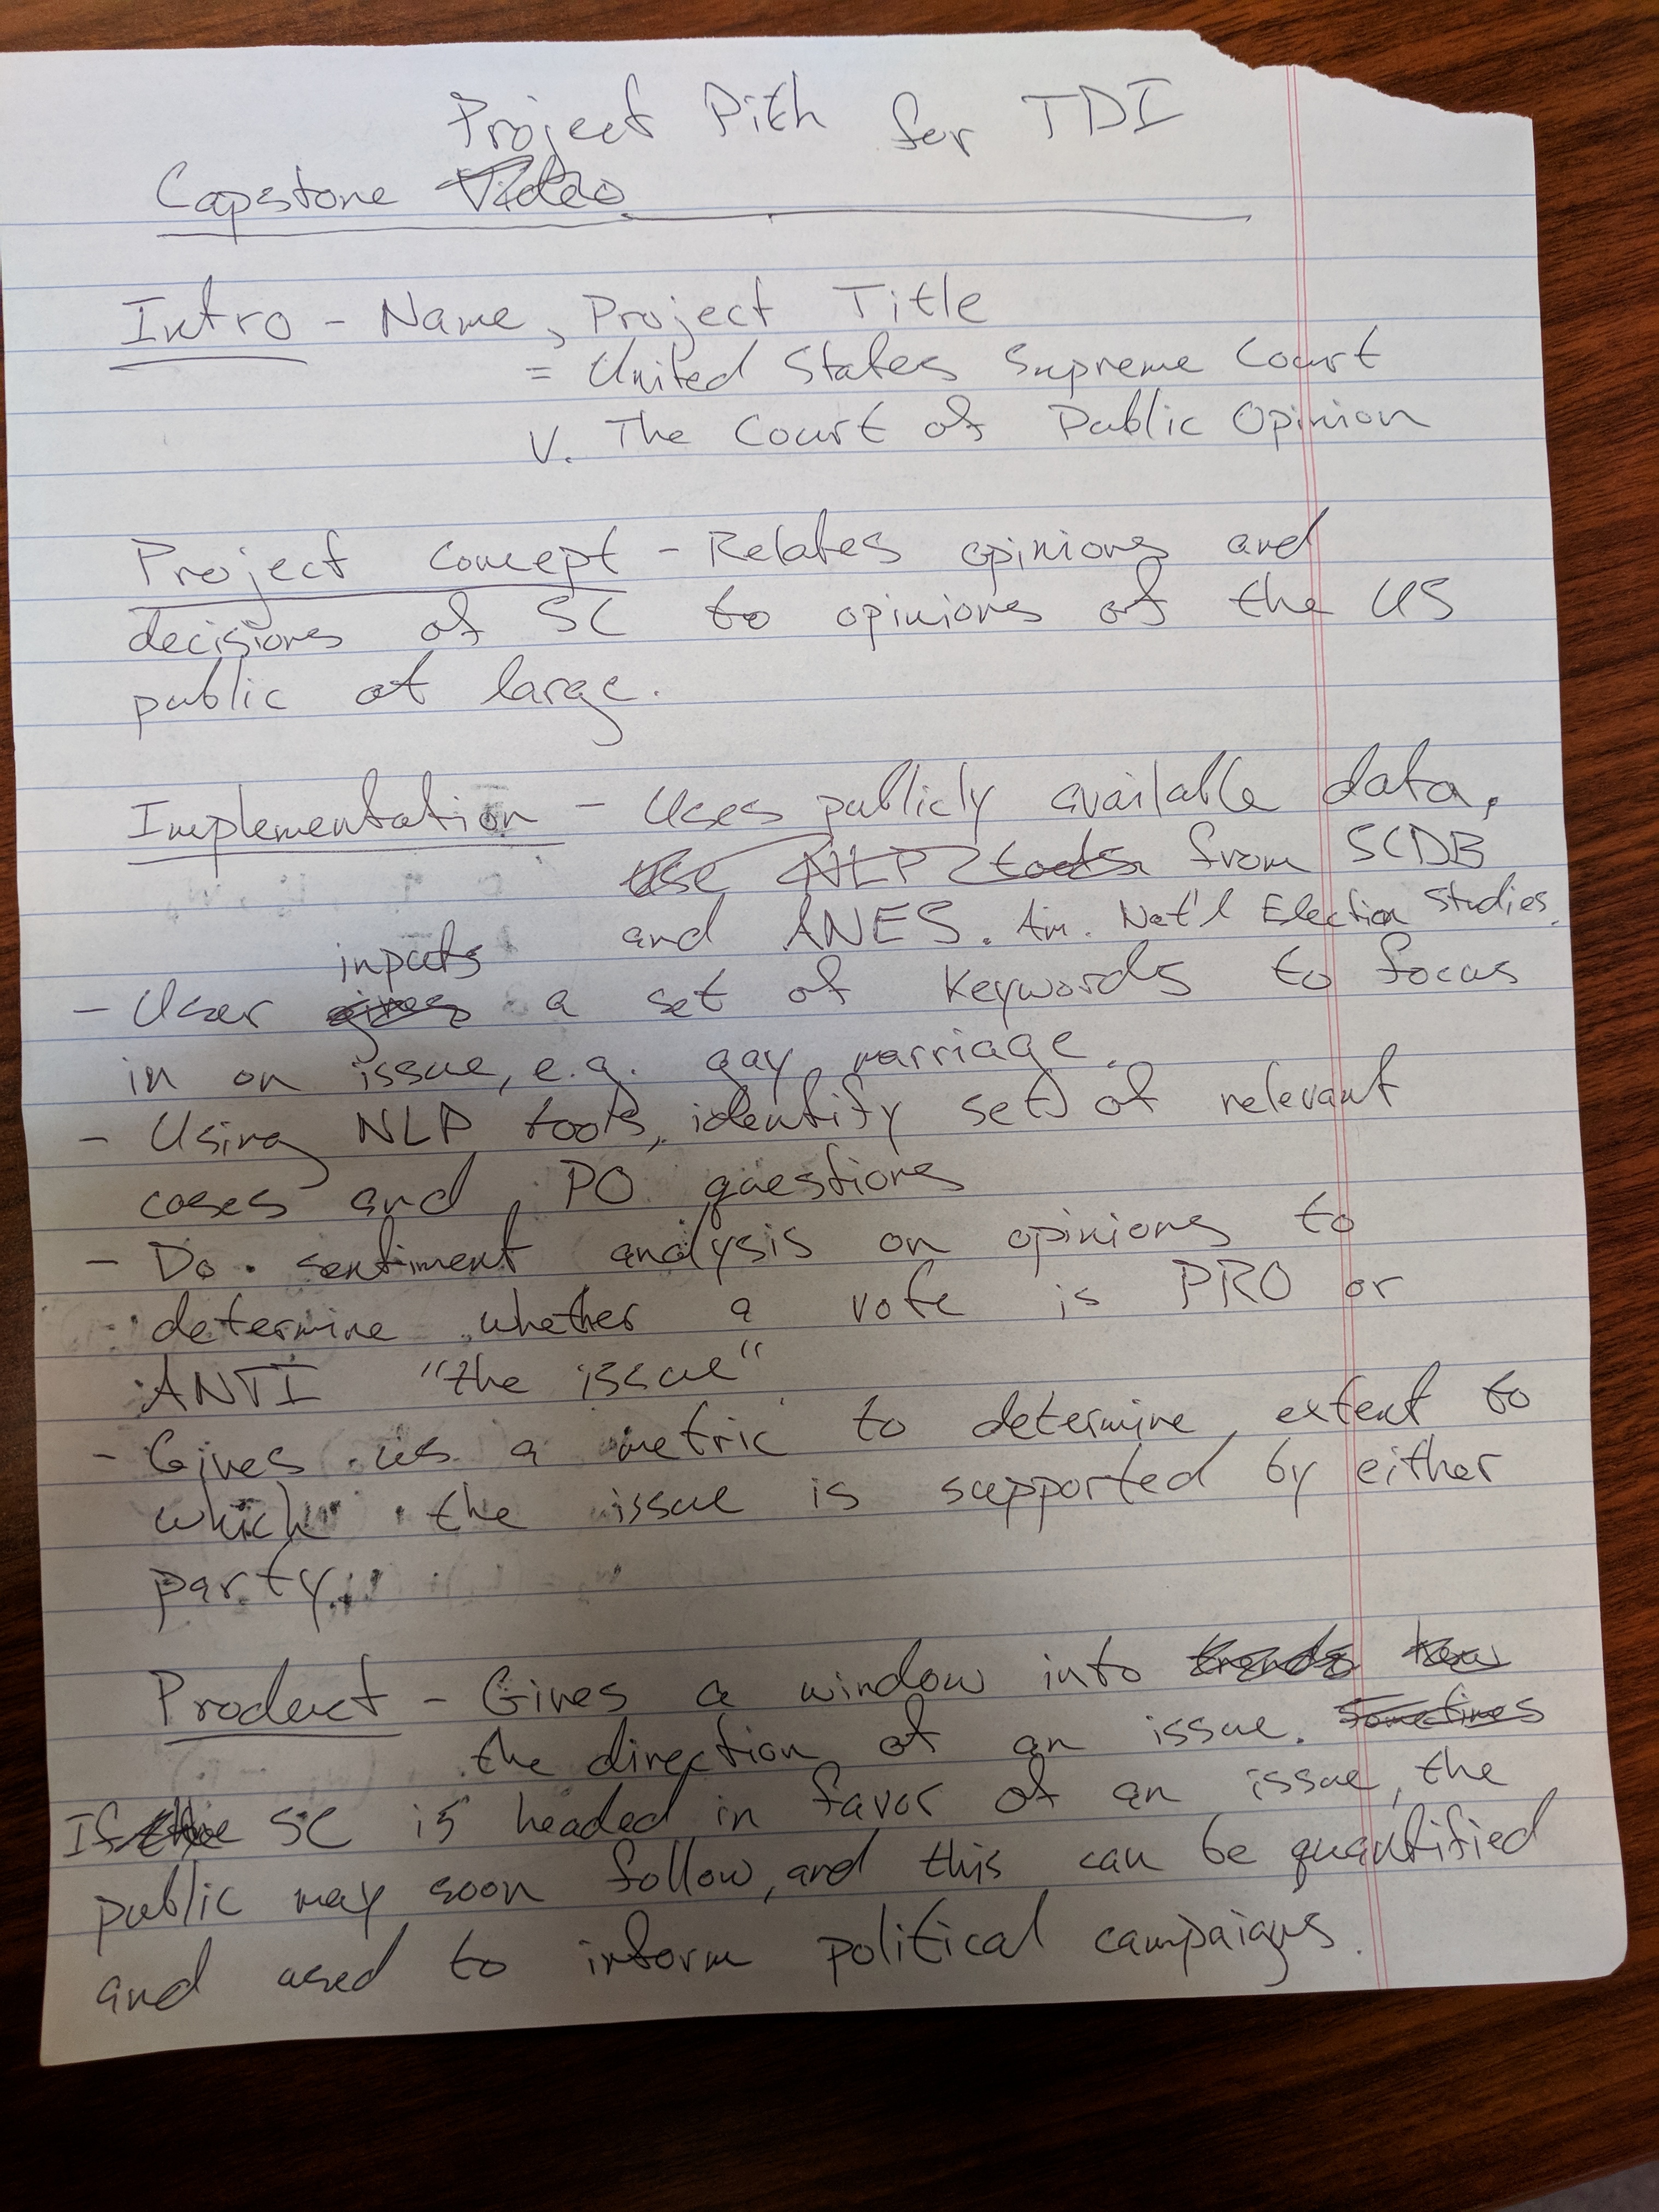 Project Pith for TDI
Capstone Video
Intro - Name, Project Title
= United States Supreme Court
V. The Court of Public Opinion
Project Concept - Relates opinions and
decisions of SC to opinions of the US
public at large.
Implementation - Uses publicly available data,
Use NLP tools from SCDB
and ANES. Am. Nat'l Election Studies.
inputs
- User gives a set of keywords to focus
in on issue, e.g. gay marriage.
- Using NLP tools, identify set of relevant
cases and PO questions
- Do sentiment analysis on opinions to
determine whether a vote is PRO or
ANTI "the issue"
- Gives us a metric to determine extent to
which the issue is supported by either
party.
Product - Gives a window into trends
the direction of an issue. Sometimes
If the SC is headed in favor of an issue, the
public may soon follow, and this can be quantified
and used to inform political campaigns.